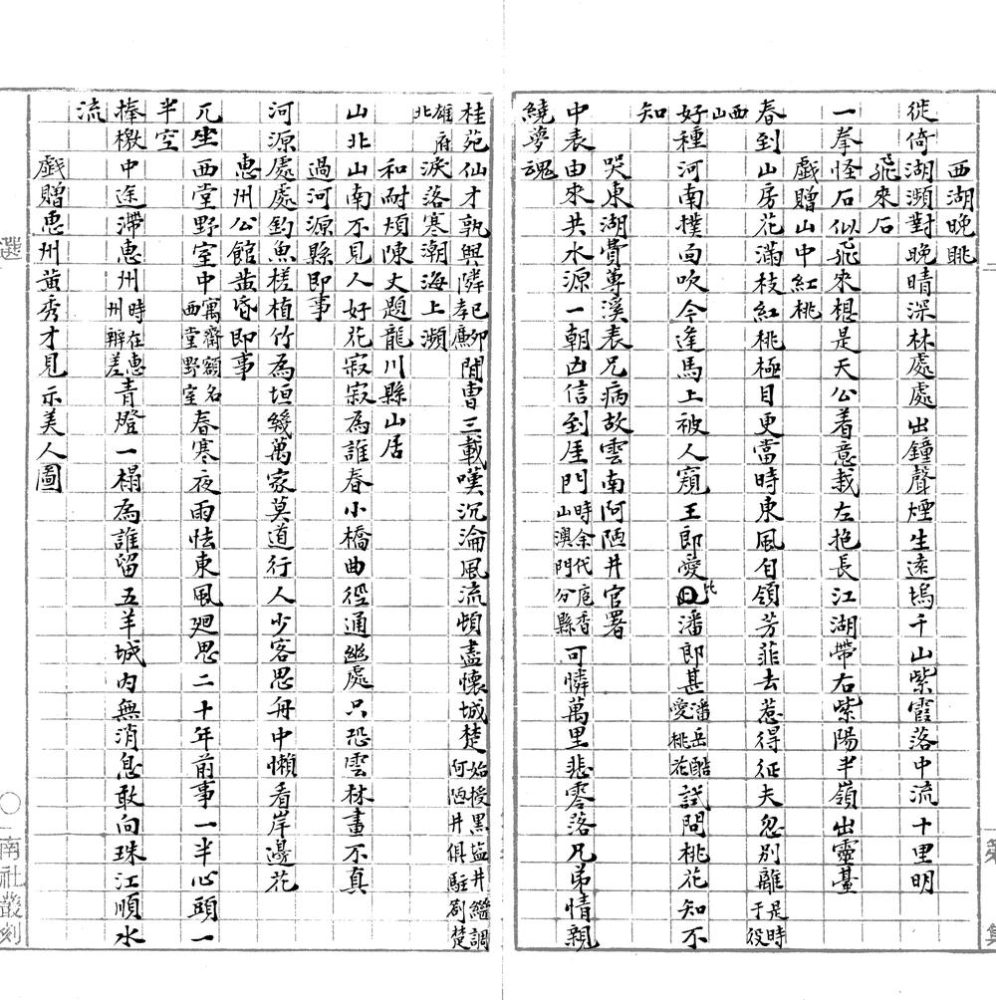 二
第
集
西湖晚眺
徙倚湖瀕對晚晴深林處處出鐘聲煙生遠塢千山紫霞落中流十里明
飛來石
一拳怪石似飛來想是天公着意栽左抱長江湖帶右紫陽半嶺出靈臺
戲贈山中紅桃
春到山房花滿枝紅桃極目更當時東風自領芳菲去惹得征夫忽別離是時于役
西山
好種河南撲面吹今逢馬上被人窺王郎愛此潘郎甚潘岳酷愛桃花試問桃花知不
知
哭東湖費尊溪表兄病故雲南阿陋井官署
中表由來共水源一朝凶信到厓門時余代庖香山澳門分縣可憐萬里悲零落兄弟情親
繞夢魂
桂苑仙才孰與隣己卯孝廉閒曹三載嘆沉淪風流頓盡懷城楚始授黑盐井繼調阿陋井俱駐劄楚
雄府北淚落寒潮海上瀕
和耐煩陳丈題龍川縣山居
山北山南不見人好花寂寂為誰春小橋曲徑通幽處只恐雲林畫不真
過河源縣即事
河源處處釣魚槎植竹為垣幾萬家莫道行人少客思舟中懶看岸邊花
惠州公館黃昏即事
兀坐西堂野室中寓齋額名西堂野室春寒夜雨怯東風廻思二十年前事一半心頭一
半空
捧檄中途滯惠州時在惠州辦差青燈一榻為誰留五羊城內無消息敢向珠江順水
流
戲贈惠州黃秀才見示美人圖
選
〇
南社叢刻